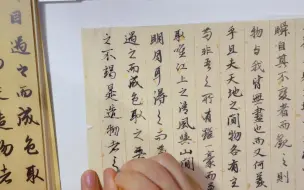 瞬自其不變者而觀
物与我皆無盡也而又何羨
乎且夫天地之間物各有
苟非吾之所有雖一毫而
取唯江上之清風與山間
明月耳得之而
遇之而成色取之無
之不竭是造物者之
目遇之而成色取
造物者